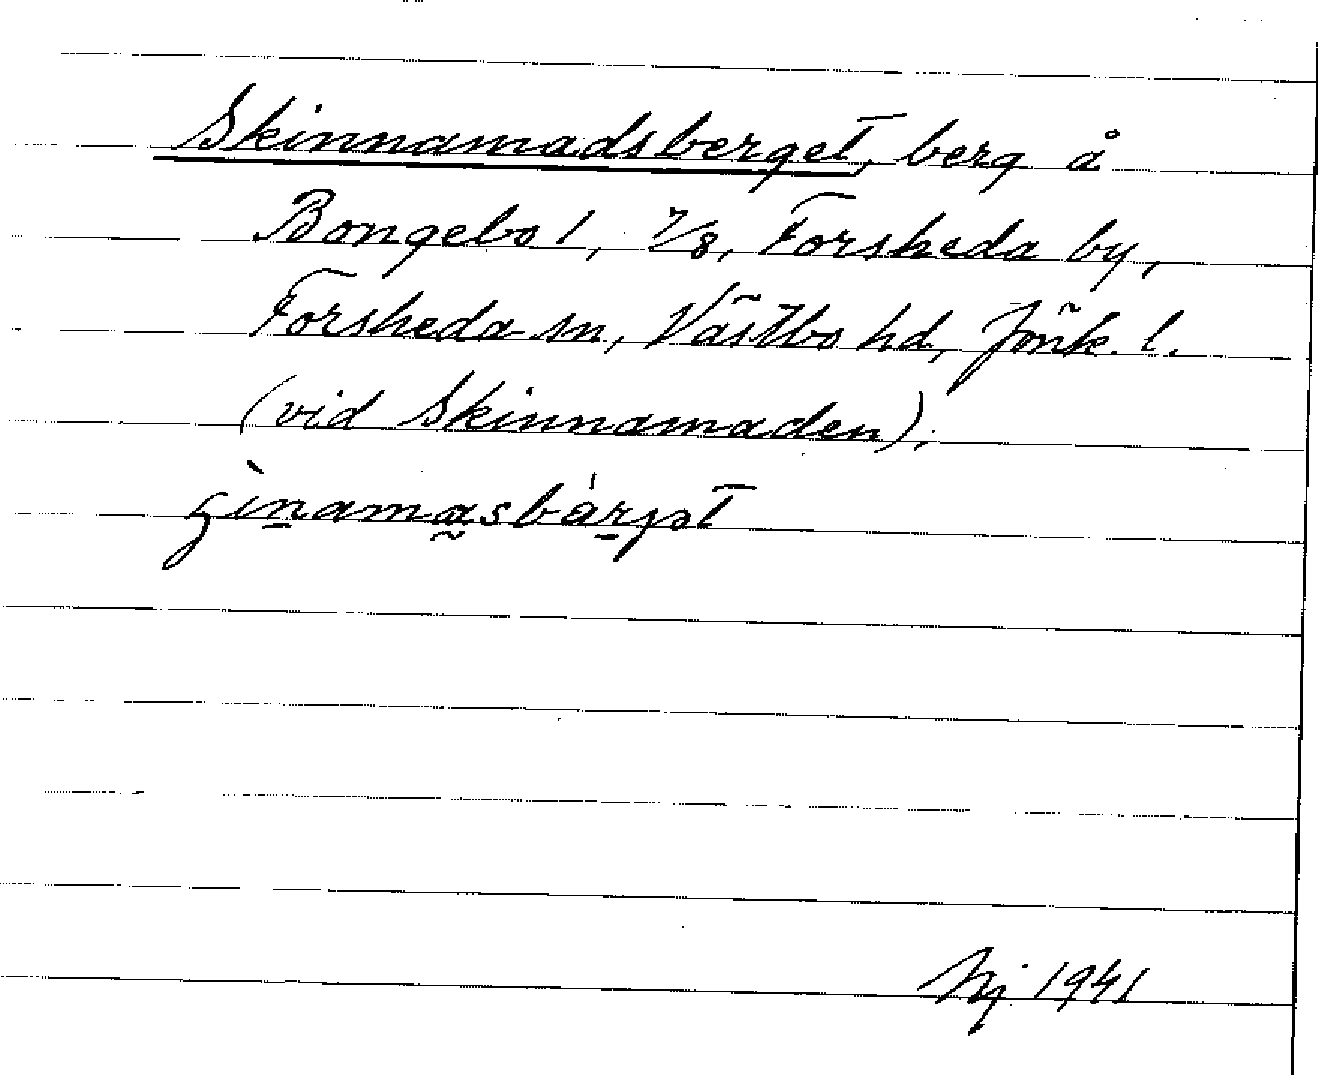 Skinnamadsberget, berg å
Bongebo 1, 7/8, Forsheda by,
Forsheda sn, Västbo hd, Jönk. l.
(vid Skinnamaden);
1941